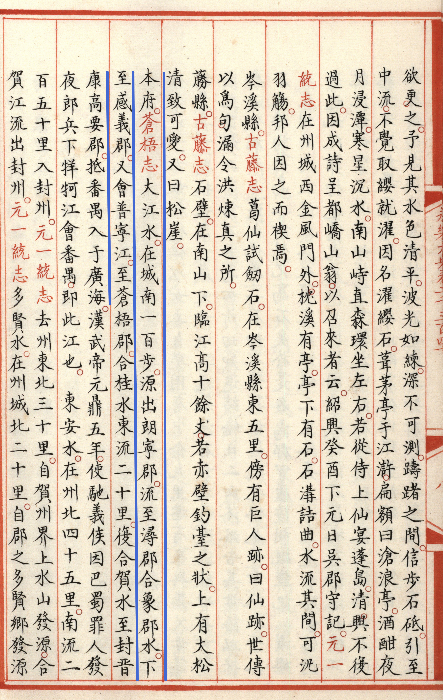 欲更之予見其水色清平波光如練深不可測躊躇之間信步石砥引至
中流不覺取纓就濯因名濯纓石葺茅亭于江滸扁額曰滄浪亭酒酣夜
月浸潭寒星沉水南山峙直森環坐左右若從侍上仙宴蓬島清興不復
過此因成詩呈都嶠山翁以召來者云紹興癸酉下元日吳郡守記元一
統志在州城西金風門外枕溪有亭亭下有石石溝詰曲水流其間可汎
羽觴邦人因之而禊焉
岑溪縣古藤志葛仙試劒石在岑溪縣東五里傍有巨人跡曰仙跡世傳
以爲句漏令洪煉真之所
藤縣古藤志石壁在南山下臨江高十餘丈若赤壁釣臺之狀上有大松
清致可愛又曰松崖
本府蒼梧志大江水在城南一百步源出朗寧郡流至潯郡合象郡水下
至感義郡又會普寧江至蒼梧郡合桂水東流二十里復合賀水至封晋
康高要郡抵番禺入于廣海漢武帝元鼎五年使馳義侯因巴蜀罪人發
夜郎兵下牂牁江會番禺即此江也 東安水在州北四十五里南流二
百五十里入封州元一統志去州東北三十里自賀州界上水山發源合
賀江流出封州元一統志多賢水在州城北二十里自郡之多賢鄉發源